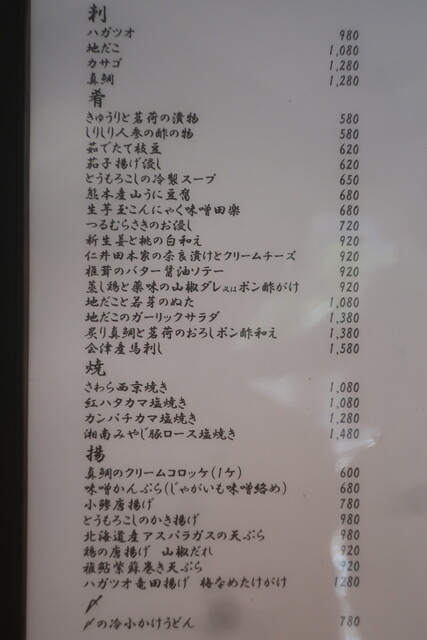 刺
ハガツオ 980
地だこ 1,080
カサゴ 1,280
真鯛 1,280
肴
きゅうりと茗荷の漬物 580
しりしり人参の酢の物 580
茹でたて枝豆 620
茄子揚げ浸し 620
とうもろこしの冷製スープ 650
熊本産山うに豆腐 680
生芋玉こんにゃく味噌田楽 680
つるむらさきのお浸し 720
新生姜と桃の白和え 920
仁井田本家の奈良漬けとクリームチーズ 920
椎茸のバター醤油ソテー 920
蒸し鶏と薬味の山椒ダレ又はポン酢がけ 920
地だこと若芽のぬた 1,080
地だこのガーリックサラダ 1,380
炙り真鯛と茗荷のおろしポン酢和え 1,380
会津産馬刺し 1,580
焼
さわら西京焼き 1,080
紅ハタカマ塩焼き 1,080
カンパチカマ塩焼き 1,280
湘南みやじ豚ロース塩焼き 1,480
揚
真鯛のクリームコロッケ(1ケ) 600
味噌かんぷら(じゃがいも味噌絡め) 680
小鯵唐揚げ 780
とうもろこしのかき揚げ 980
北海道産アスパラガスの天ぷら 980
鶏の唐揚げ 山椒だれ 920
稚鮎紫蘇巻き天ぷら 920
ハガツオ竜田揚げ 梅なめたけがけ 1280
〆
〆の冷小かけうどん 780